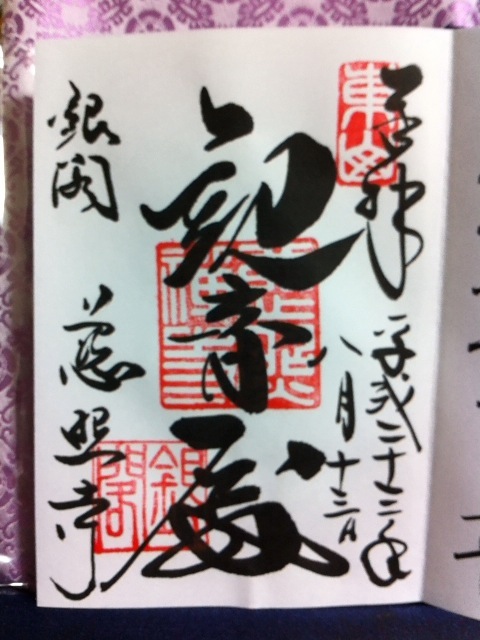 奉拝
東山
平成二十三年
八月十三日
観音殿
銀閣
銀閣
慈照寺